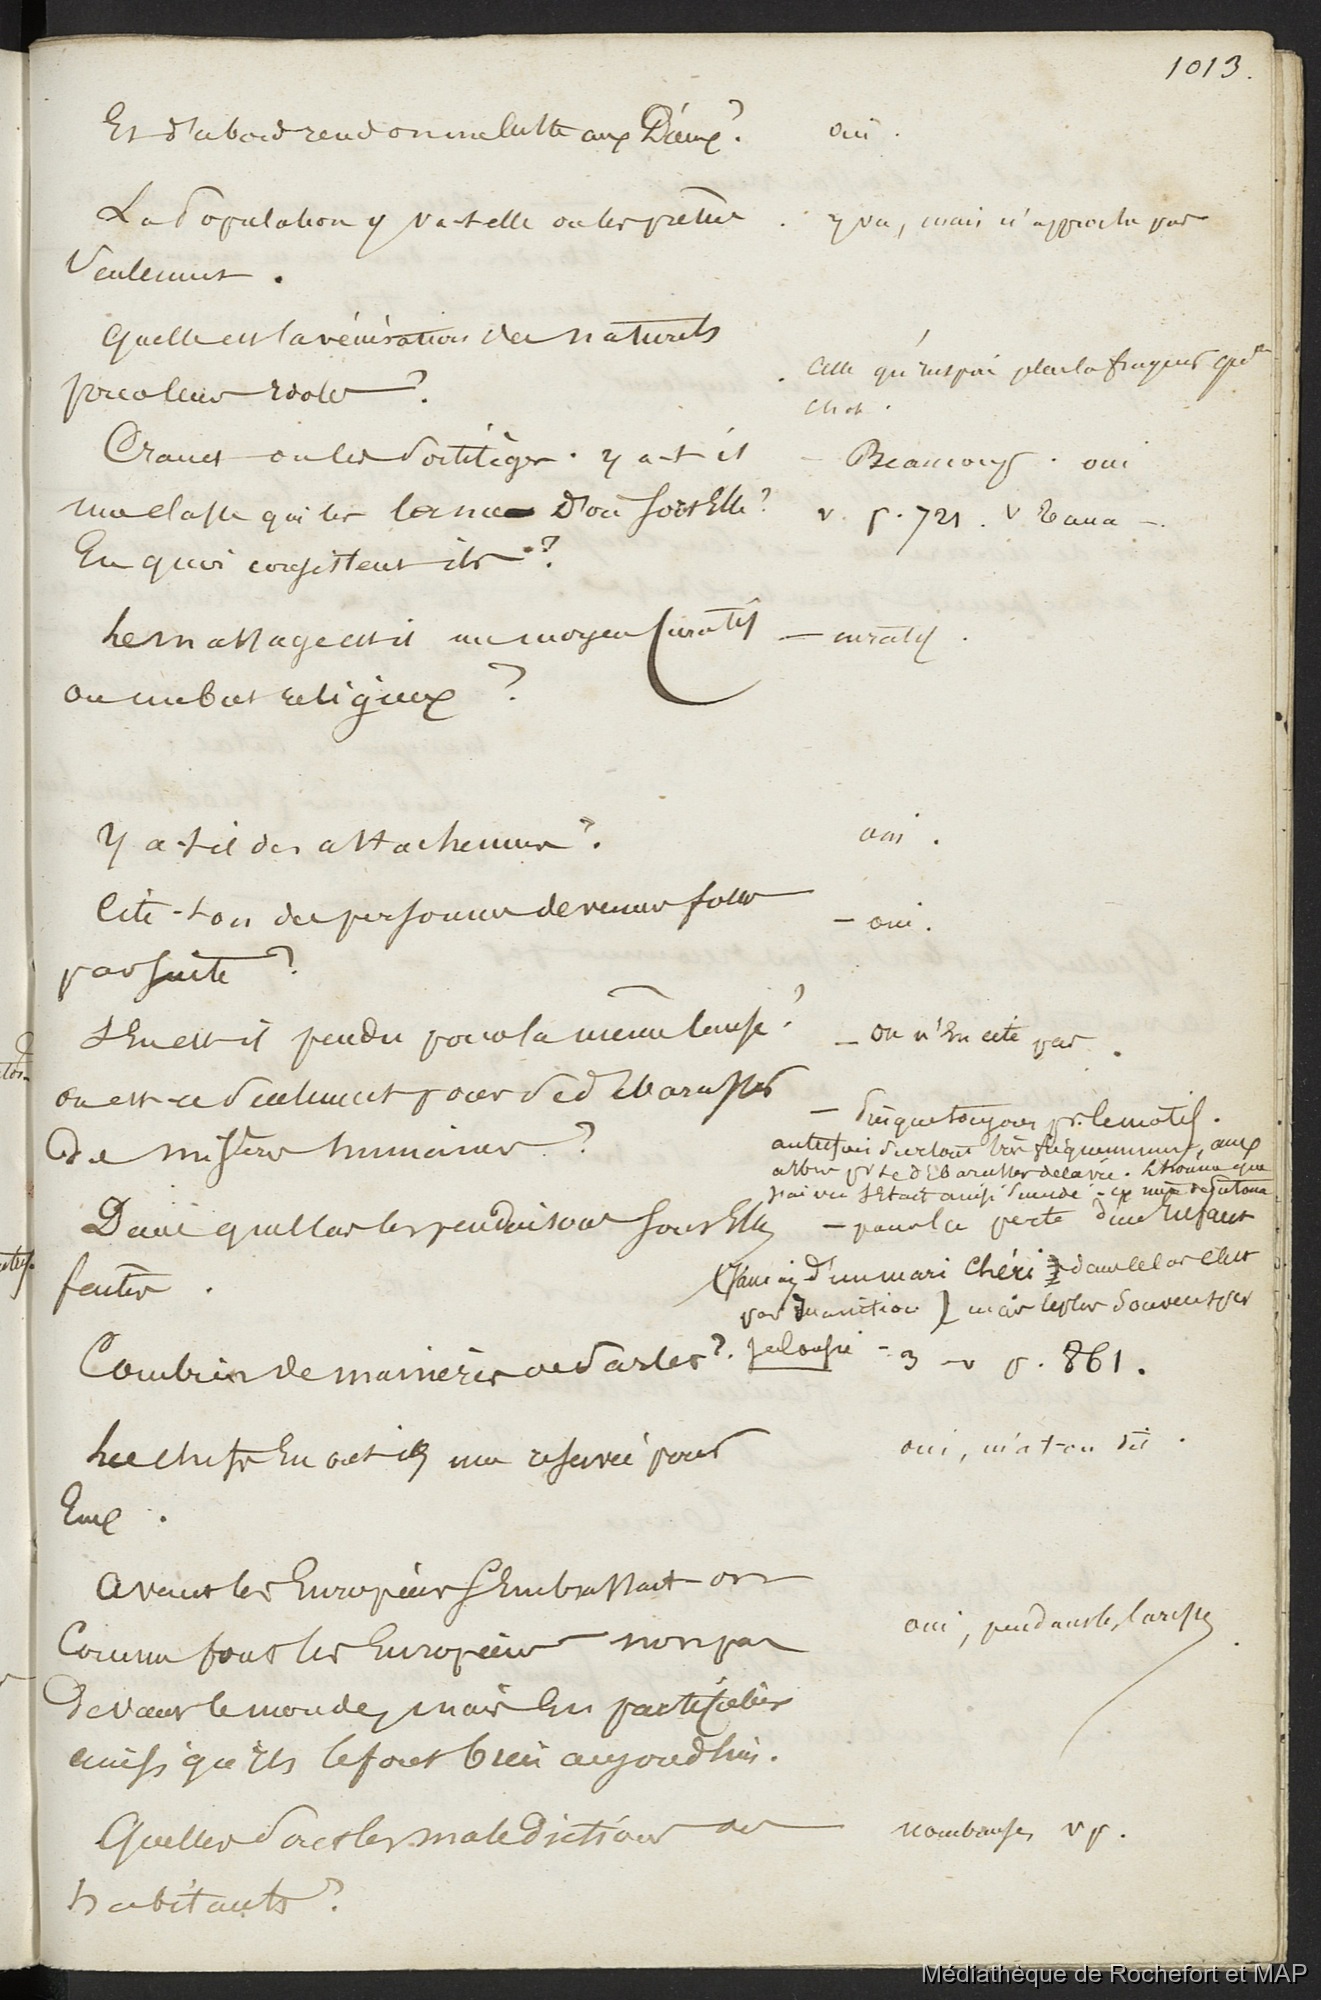 1013.
Et d'abord rend on un culte aux Dieux ? oui .
La Population y va-t-elle ou les prêtres . y va, mais n'approche pas
Seulement .
Quelle est la vénération des naturels
pour leurs Idoles ? . Celle qu'inspire plus la frayeur qu'
Craint on les Sortilèges . y a-t-il – Beaucoup . oui
une classe qui les lance D'où sort Elle ? v. p. 721. v
En quoi consistent ils ?
Le massage est il un moyen Curatif – curatif .
ou un but religieux ?
Y a-t-il des attachemens ? oui .
Cite-t-on des personnes devenues folles – oui .
par suite ?
S'En est il pendu pour la même Cause ? – on n'En cite pas .
ou est-ce Seulement pour Se débarasser
de misères humaines ? – presque toujours pr. le motif .
autrefois surtout très fréquemment, aux
pr se débarasser de la vie . L'homme que
j'ai vu S'Etait ainsi Suicidé –
Dans quel cas les pendaisons sont Elles – pour la perte d'un Enfant
faites . d'un mari Chéri dans ce cas c'est
par inanition ) mais le plus Souvent par
jalousie –
Combien de manières de Parler ? 3 – v p. 861 .
Les chefs En ont ils une réservée pour oui, m'a t-on dit .
Eux .
Avant les Européens S'Embrassait-on
Comme font les Européens non pas oui, pendant les caresses .
Devant le monde, mais En particulier
ainsi qu'ils le font bien aujourd'hui .
Quelles Sont les malédictions des nombreuses v p .
habitants ?
Médiathèque de Rochefort et MAP